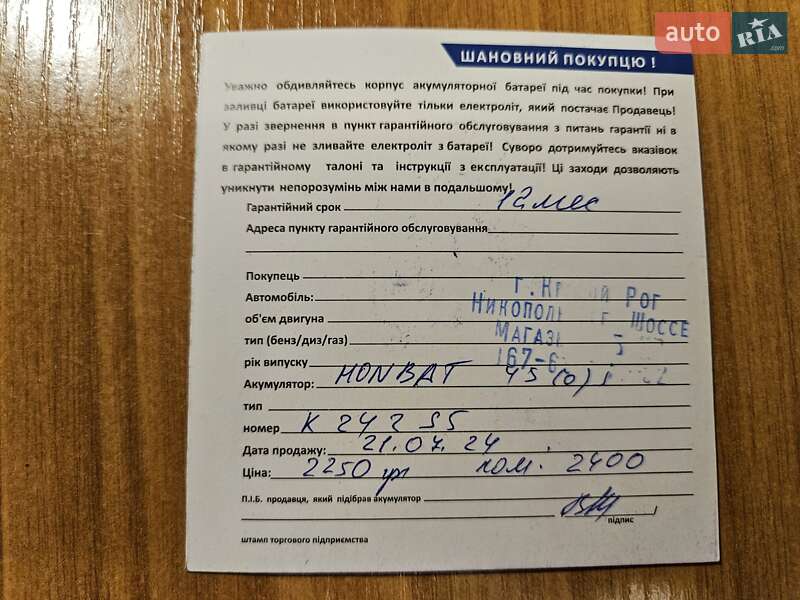 auto RIA .com
ШАНОВНИЙ ПОКУПЦЮ !
Уважно обдивляйтесь корпус акумуляторної батареї під час покупки! При
заливці батареї використовуйте тільки електроліт, який постачає Продавець!
У разі звернення в пункт гарантійного обслуговування з питань гарантії ні в
якому разі не зливайте електроліт з батареї! Суворо дотримуйтесь вказівок
в гарантійному талоні та інструкції з експлуатації! Ці заходи дозволяють
уникнути непорозумінь між нами в подальшому!
Гарантійний срок 12 мес
Адреса пункту гарантійного обслуговування
Покупець
г. Рог
Автомобіль:
ШОССЕ
об'єм двигуна
тип (бенз/диз/газ)
рік випуску
Акумулятор: MONBAT 45 (0)
тип
номер K 242 S5
Дата продажу: 21.07.24
Ціна: 2250 2400
П.І.Б. продавця, який підібрав акумулятор
підпис
штамп торгового підприємства